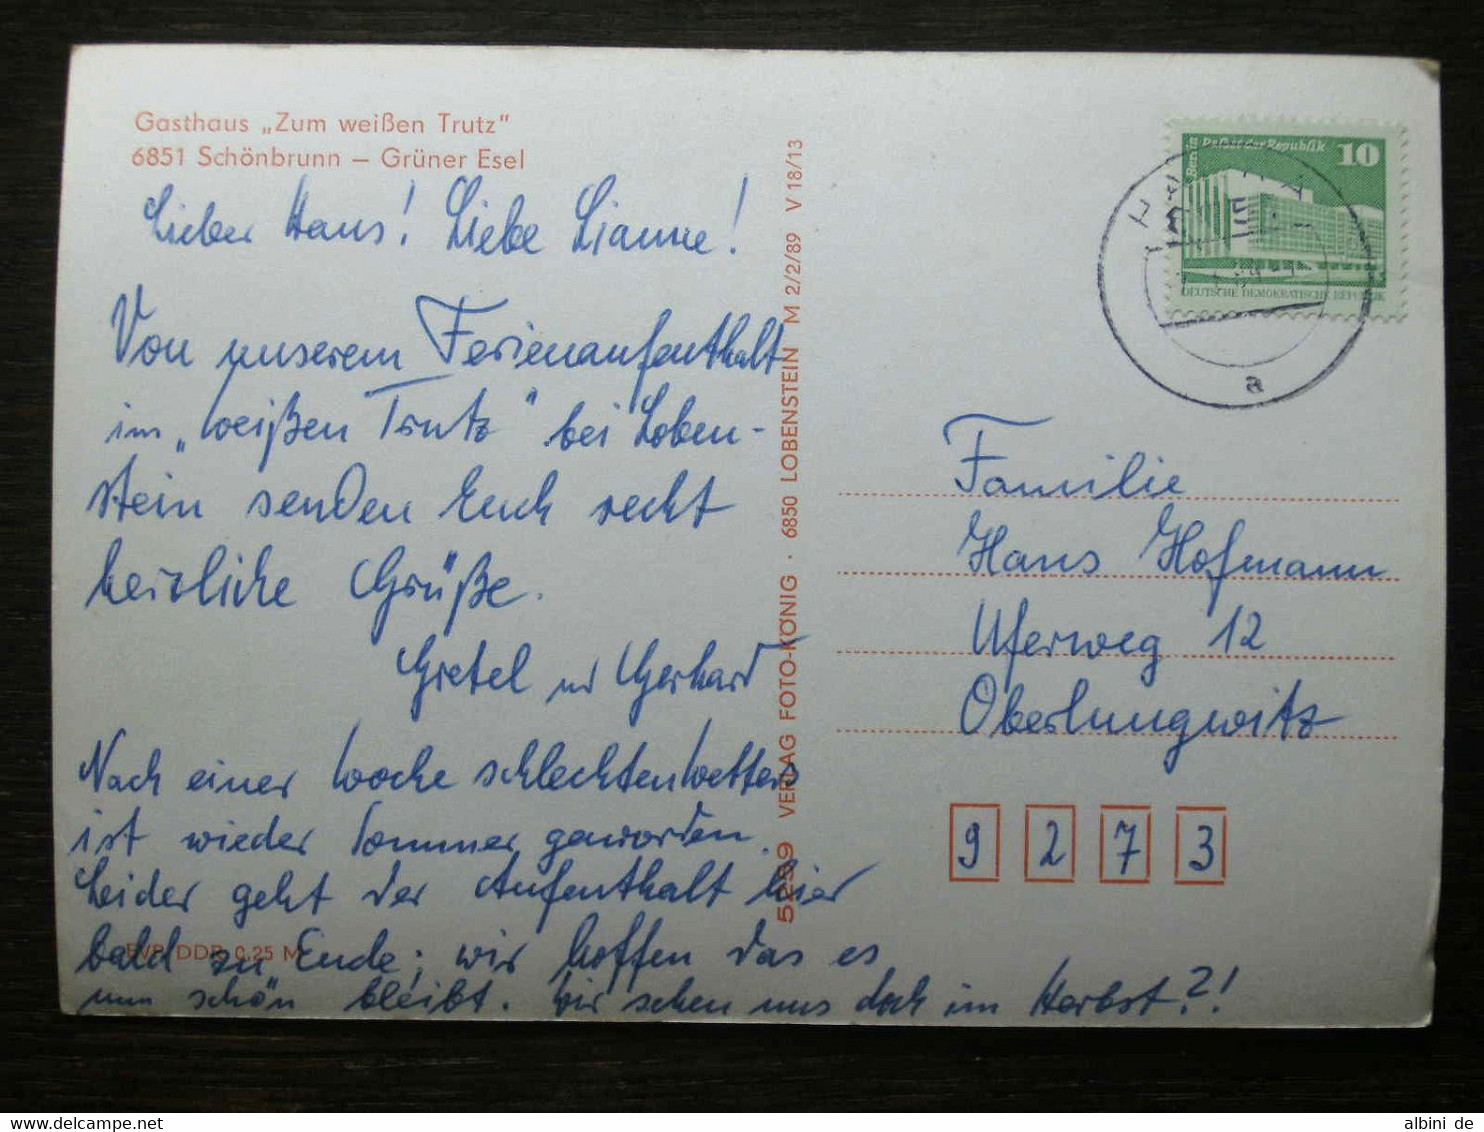 Gasthaus „Zum weißen Trutz"
6851 Schönbrunn – Grüner Esel
Lieber Hans! Liebe Lianne!
Von unserem Ferienaufenthalt
im „weißen Trutz" bei Loben-
stein senden Euch recht
herzliche Grüße.
Gretel und Gerhard
Nach einer Woche schlechten Wetters
ist wieder Sommer geworden.
Leider geht der Aufenthalt hier
bald zu Ende; wir hoffen das es
nun schön bleibt. Wir sehen uns doch im Herbst?!
EVP DDR 0,25 M
5289 VERLAG FOTO-KÖNIG · 6850 LOBENSTEIN M 2/2/89 V 18/13
Berlin Palast der Republik 10
DEUTSCHE DEMOKRATISCHE REPUBLIK
a
Familie
Hans Hofmann
Uferweg 12
Oberlungwitz
9 2 7 3
albini de